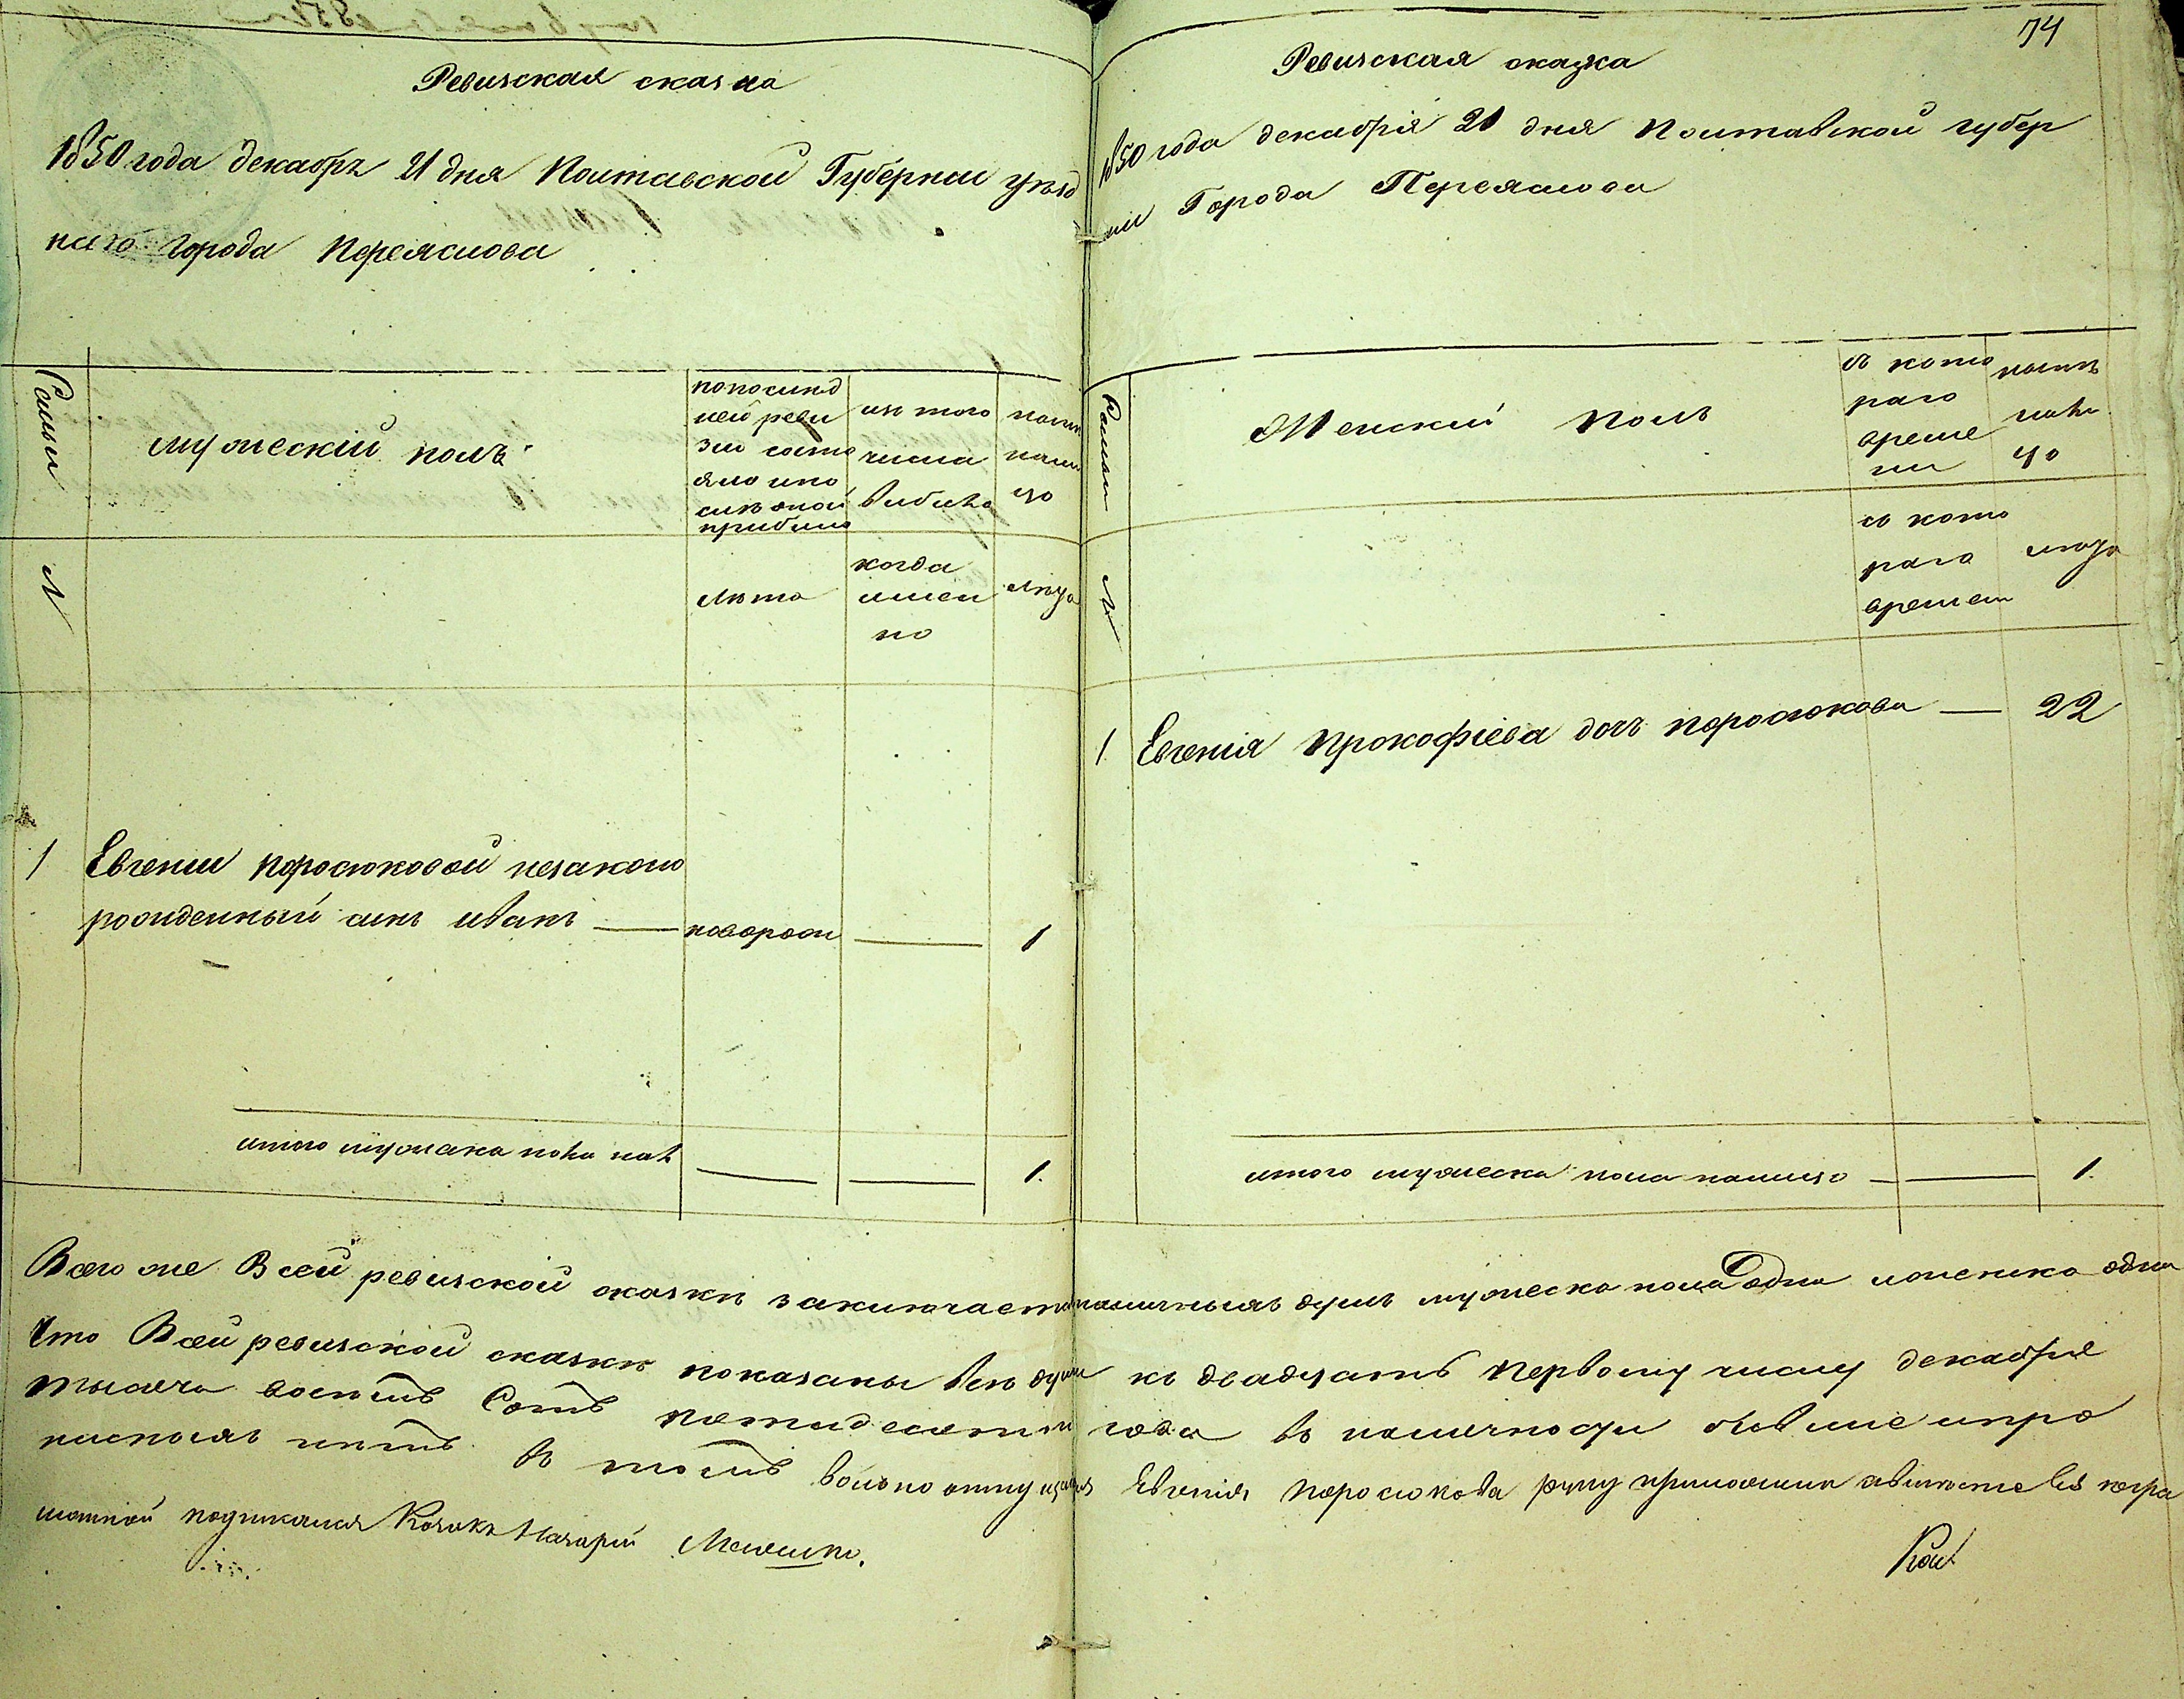 Ревизская сказка
1850 года декабръ 21 дня Полтавской Губернии уѣзд
наго города Переяслова
Семьи
мужескій полъ
по послѣд
ней реви
зіи состо
яло и по
слѣ оной
прибыло
изъ того
числа
выбыло
налич
но
№
лѣта
когда
имен
но
лѣта
1
Евгении Поросюковой незаконо
рожденный синъ Иванъ — новорож — 1
итого мужска пола нал — — 1.
74
Ревизская сказка
1850 года декабря 21 дня Полтавской губер
нии Города Переяслова
Семьи
Женский полъ
съ кото
раго
време
ни
№
съ кото
раго
времени
лѣта
1 Евгения Прокофіева дочь Поросюкова — 22
итого мужеска пола налицо — 1.
Всего же В сей ревизской сказкѣ заключается наличныхъ душъ мужеска пола Одна и женска одна
Что В сей ревизской сказкѣ показаны все души къ двадцать Первому числу декабря
тысяча восемь Сотъ пятидесятого года въ наличности бывшие и про
писныхъ нѣтъ въ томъ вольно отпущеная Евгения Поросюкова руку приложила а вместо Ея негра
мотной подписался Козакъ Назарій